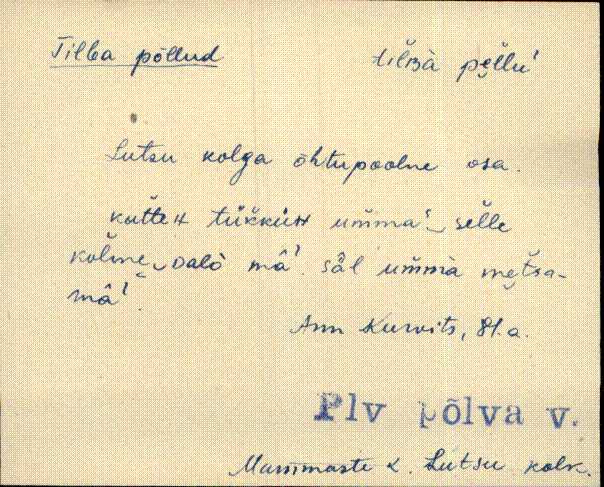 Tilba põllud   til̆bà pe̮l̆lu'
Lutsu kolga õhtupoolne osa.
kat̆teʜ tük̆küʜ um̆ma' sel̆le
kol̆me̮ ᴅalò mā̂'. sǟ̂l um̆mà me̮t̆sa-
mā̂'.
Ann Kurvits, 81.a.
Plv Põlva v.
Mammaste k. Lutsu kolk.